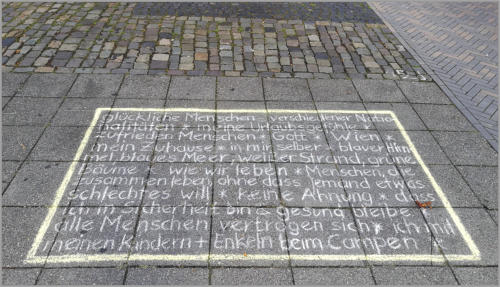 Glückliche Menschen verschiedener Natio-
nalitäten * meine Urlaubsgefühle *
zufrieden Menschen * Gott * Wien *
mein zuhause * in mir selber * blauer Him
mel, blaues Meer, weißer Strand, grüne
Bäume * wie wir leben * Menschen, die
zusammen leben, ohne dass jemand etwas
schlechtes will * keine Ahnung * dass
ich in Sicherheit bin & gesund bleibe *
alle Menschen vertragen sich * ich mit
meinen Kindern + Enkeln beim Campen *